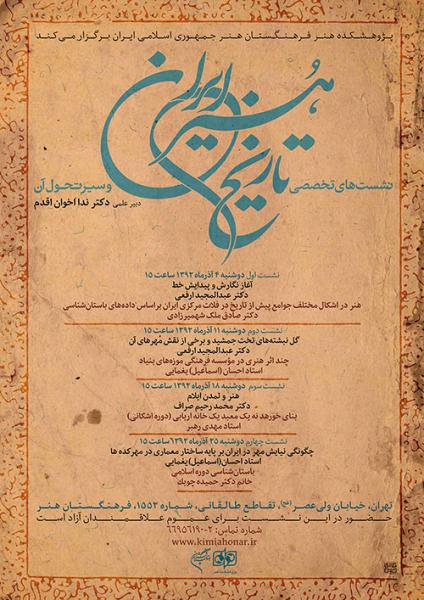 پژوهشکده هنر فرهنگستان هنر جمهوری اسلامی ایران برگزار می‌کند
نشست‌های تخصصی
تاریخ هنر ایران
و سیر تحول آن
دبیر علمی دکتر ندا اخوان اقدم
نشست اول دوشنبه ۴ آذرماه ۱۳۹۲ ساعت ۱۵
آغاز نگارش و پیدایش خط
دکتر عبدالمجید ارفعی
هنر در اشکال مختلف جوامع پیش از تاریخ در فلات مرکزی ایران براساس داده‌های باستان‌شناسی
دکتر صادق ملک شهمیرزادی
نشست دوم دوشنبه ۱۱ آذرماه ۱۳۹۲ ساعت ۱۵
گل نبشته‌های تخت جمشید و برخی از نقش مهرهای آن
دکتر عبدالمجید ارفعی
چند اثر هنری در مؤسسه فرهنگی موزه‌های بنیاد
استاد احسان (اسماعیل) یغمایی
نشست سوم دوشنبه ۱۸ آذرماه ۱۳۹۲ ساعت ۱۵
هنر و تمدن ایلام
دکتر محمد رحیم صراف
بنای خورهه نه یک معبد یک خانه اربابی (دوره اشکانی)
استاد مهدی رهبر
نشست چهارم دوشنبه ۲۵ آذرماه ۱۳۹۲ ساعت ۱۵
چگونگی نیایش مهر در ایران بر پایه ساختار معماری در مهرکده ها
استاد احسان (اسماعیل) یغمایی
باستان‌شناسی دوره اسلامی
خانم دکتر حمیده چوبک
تهران، خیابان ولی‌عصر (عج)، تقاطع طالقانی، شماره ۱۵۵۲، فرهنگستان هنر
حضور در این نشست برای عموم علاقمندان آزاد است
شماره تماس: ۲-۶۶۹۵۶۱۹۰
www.kimiahonar.ir